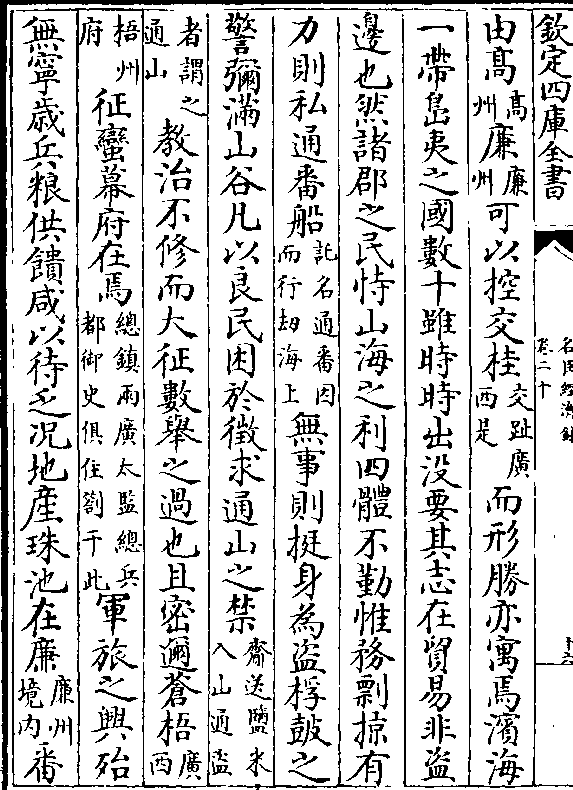 欽定四庫全書
名臣經濟録
卷二十
由髙髙州廉廉州可以控交桂交趾廣西是而形勝亦寓焉濱海
一帶島夷之國數十雖時時出没要其志在貿易非盗
邊也然諸郡之民恃山海之利四體不勤惟務剽掠有
力則私通番船託名通番因而行刼海上無事則挺身為盗桴鼓之
警彌滿山谷凡以良民困於徴求通山之禁齎送鹽米入山通盗
者謂之通山教治不修而大征數舉之過也且密邇蒼梧廣西
梧州府征蠻幕府在焉總鎮兩廣太監總兵都御史俱住劄于此軍旅之興殆
無寧歳兵粮供饋咸以待之况地產珠池在廉廉州境内番